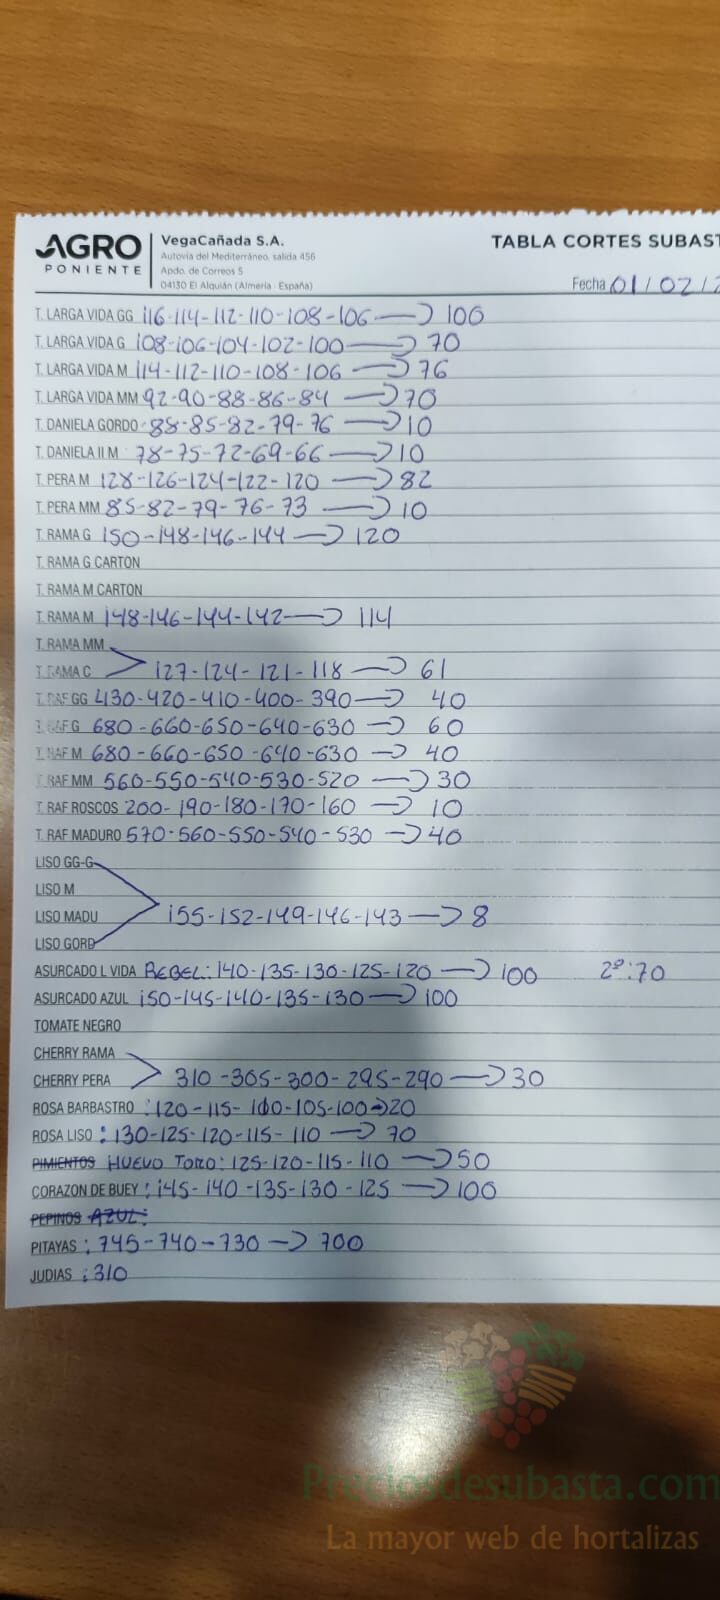 AGRO
PONIENTE
VegaCañada S.A.
Autovía del Mediterráneo, salida 456
Apdo. de Correos 5
04130 El Alquián (Almería - España)
TABLA CORTES SUBAST
Fecha 01/02/2
T. LARGA VIDA GG 116-114-112-110-108-106 → 100
T. LARGA VIDA G 108-106-104-102-100 → 70
T. LARGA VIDA M 114-112-110-108-106 → 76
T. LARGA VIDA MM 92-90-88-86-84 → 70
T. DANIELA GORDO 88-85-82-79-76 → 10
T. DANIELA II M 78-75-72-69-66 → 10
T. PERA M 128-126-124-122-120 → 82
T. PERA MM 85-82-79-76-73 → 10
T. RAMA G 150-148-146-144 → 120
T. RAMA G CARTON
T. RAMA M CARTON
T. RAMA M 148-146-144-142 → 114
T. RAMA MM
T. RAMA C 127-124-121-118 → 61
T. RAF GG 430-420-410-400-390 → 40
T. RAF G 680-660-650-640-630 → 60
T. RAF M 680-660-650-640-630 → 40
T. RAF MM 560-550-540-530-520 → 30
T. RAF ROSCOS 200-190-180-170-160 → 10
T. RAF MADURO 570-560-550-540-530 → 40
LISO GG-G
LISO M
LISO MADU 155-152-149-146-143 → 8
LISO GORD
ASURCADO L VIDA REBEL: 140-135-130-125-120 → 100 2º: 70
ASURCADO AZUL 150-145-140-135-130 → 100
TOMATE NEGRO
CHERRY RAMA
CHERRY PERA 310-305-300-295-290 → 30
ROSA BARBASTRO : 120-115-110-105-100 → 20
ROSA LISO : 130-125-120-115-110 → 70
PIMIENTOS HUEVO TORO: 125-120-115-110 → 50
CORAZON DE BUEY : 145-140-135-130-125 → 100
PEPINOS AZUL:
PITAYAS : 745-740-730 → 700
JUDIAS : 310
Preciosdesubasta.com
La mayor web de hortalizas